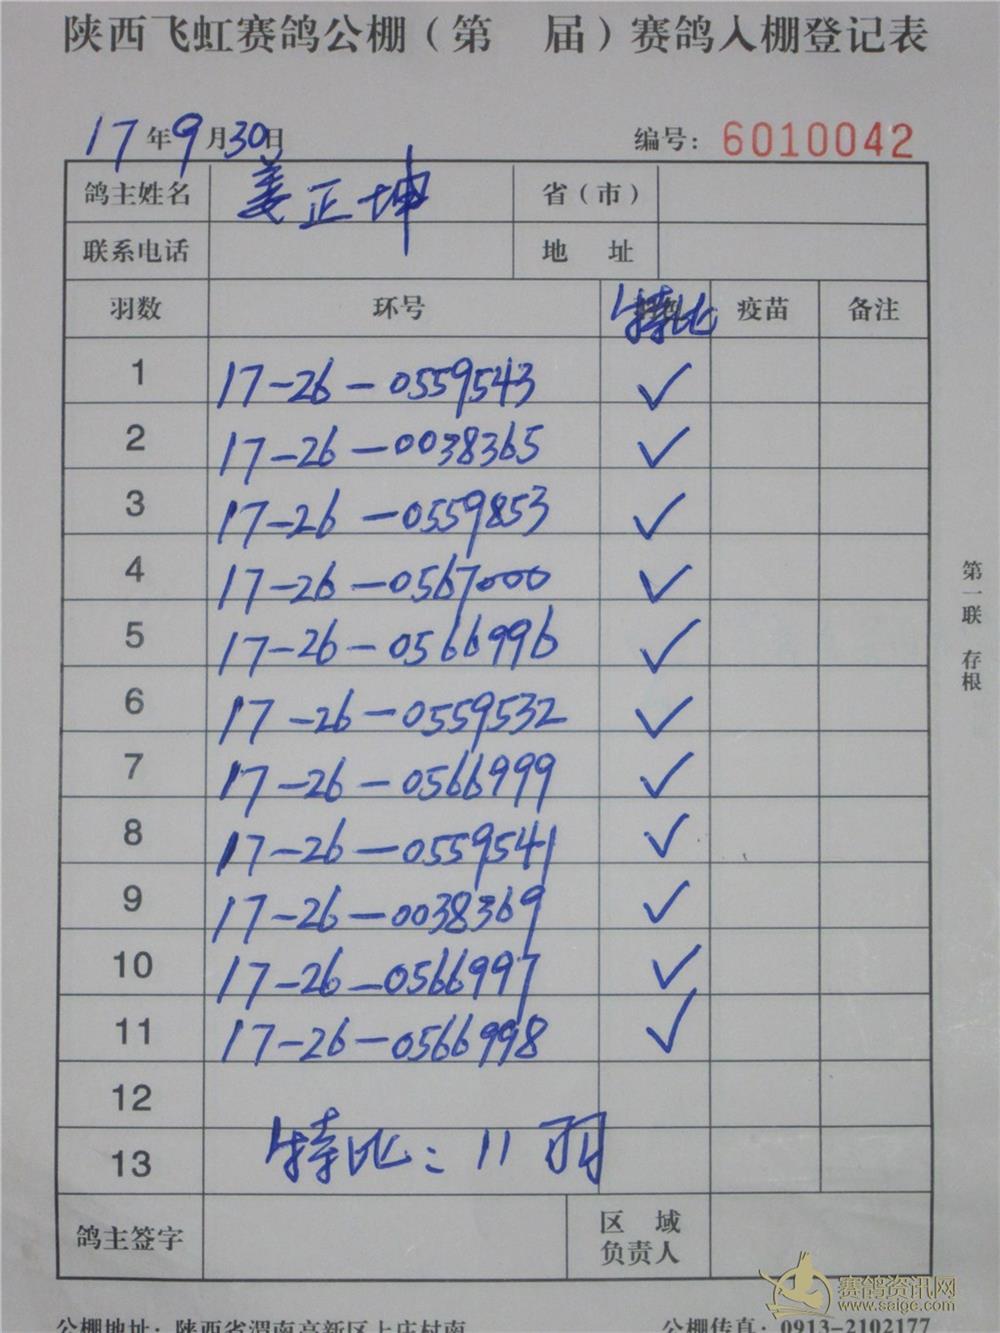 陕西飞虹赛鸽公棚（第 届）赛鸽入棚登记表
17年9月30日 编号：6010042
鸽主姓名 姜正坤 省（市）
联系电话 地 址
羽数 环号 特比 疫苗 备注
1 17-26-0559543 ✓
2 17-26-0038365 ✓
3 17-26-0559853 ✓
4 17-26-0567000 ✓
5 17-26-0566996 ✓
6 17-26-0559532 ✓
7 17-26-0566999 ✓
8 17-26-0559541 ✓
9 17-26-0038369 ✓
10 17-26-0566997 ✓
11 17-26-0566998 ✓
12
13 特比：11羽
鸽主签字 区域负责人
第一联 存根
公棚地址：陕西省渭南高新区上庄村南 公棚传真：0913-2102177
赛鸽资讯网
www.saigc.com